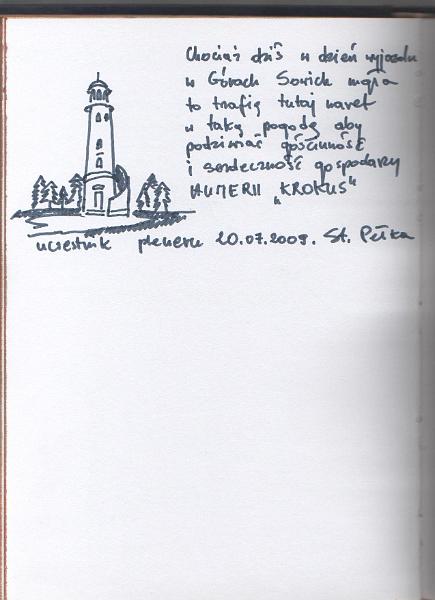 Chociaż dziś w dzień wyjazdu
w Górach Sowich mgła
to trafię tutaj nawet
w taką pogodę aby
podziwiać gościnność
i serdeczność gospodarzy
HUMERII „KROKUS"
uczestnik pleneru 20.07.2009. St. Pełka